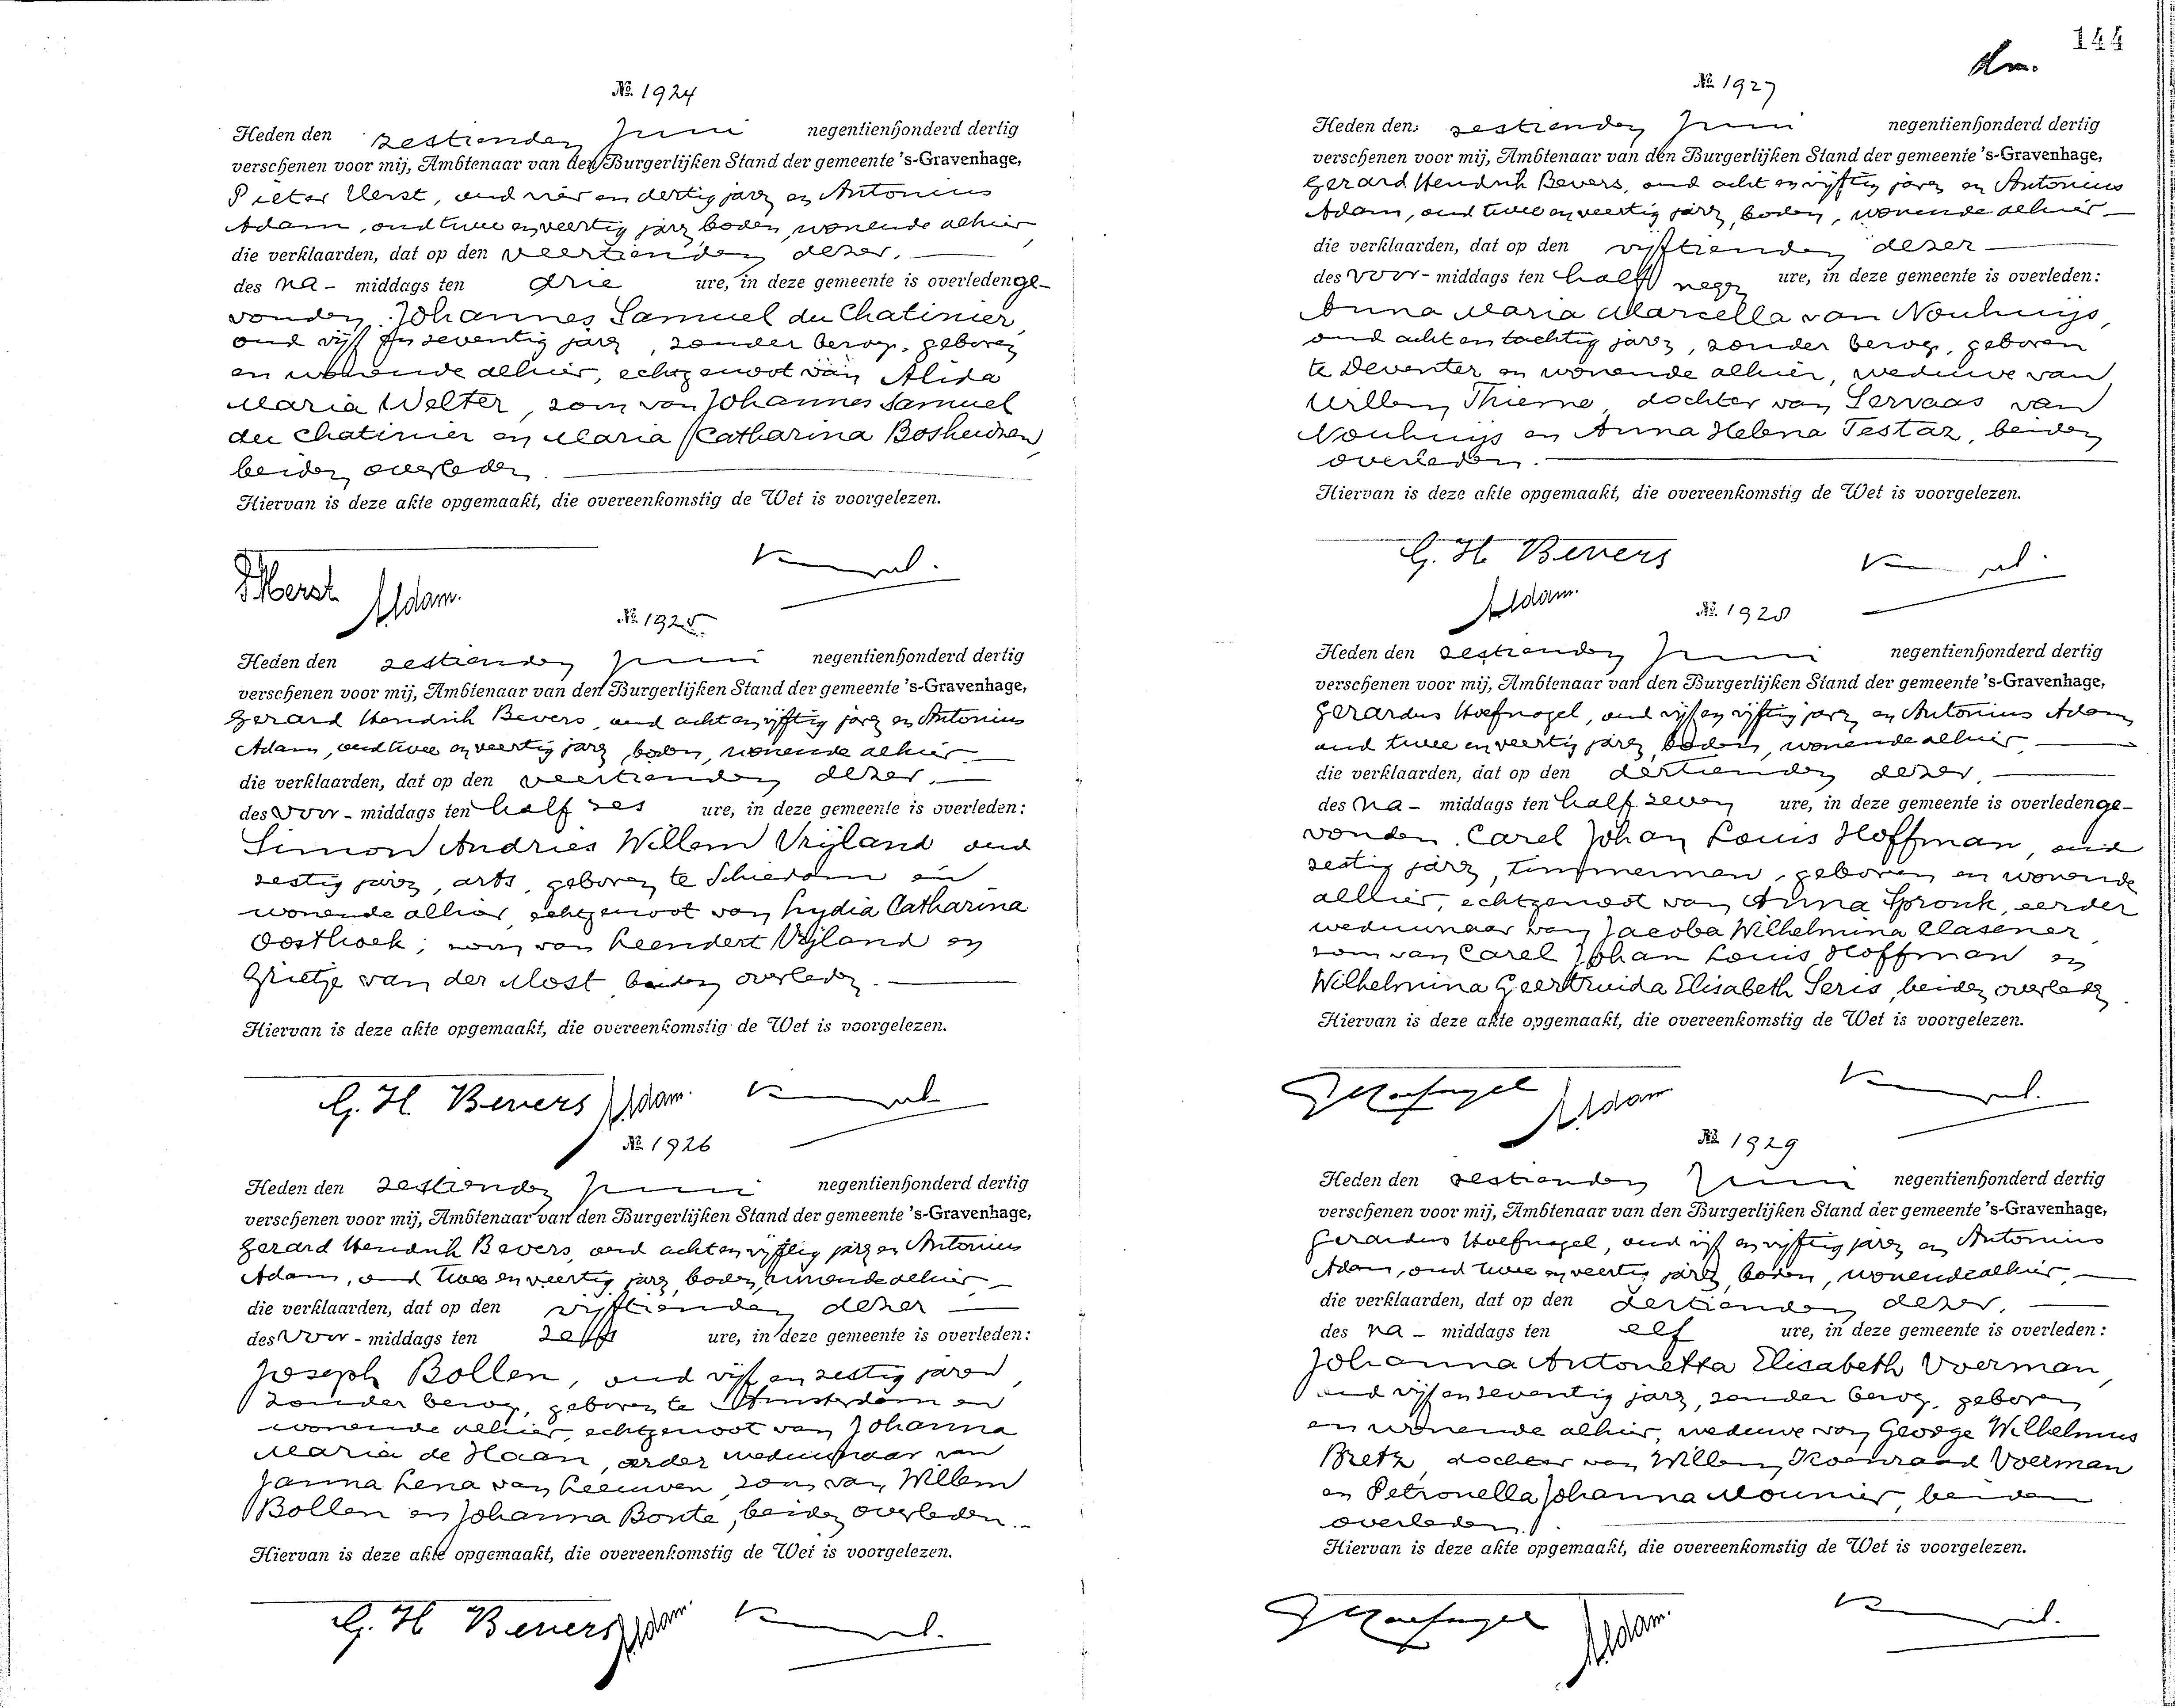 № 1924
Heden den zestienden Juni negentienhonderd dertig
verschenen voor mij, Ambtenaar van den Burgerlijken Stand der gemeente 's-Gravenhage,
Pieter Herst, oud vier en dertig jaren en Antonius
Adam, oud twee en veertig jaren boden, wonende alhier
die verklaarden, dat op den veertienden dezer,
des na- middags ten drie ure, in deze gemeente is overleden ge-
vonden: Johannes Samuel du Chatinier,
oud vijf en zeventig jaren, zonder beroep, geboren
en wonende alhier, echtgenoot van Alida
Maria Welter, zoon van Johannes Samuel
du Chatinier en Maria Catharina Bosheuzen,
beiden overleden.
Hiervan is deze akte opgemaakt, die overeenkomstig de Wet is voorgelezen.
PHerst Adam.
№ 1925
Heden den zestienden Juni negentienhonderd dertig
verschenen voor mij, Ambtenaar van den Burgerlijken Stand der gemeente 's-Gravenhage,
Gerard Hendrik Bevers, oud acht en vijftig jaren en Antonius
Adam, oud twee en veertig jaren, boden, wonende alhier
die verklaarden, dat op den veertienden dezer,
des voor- middags ten half zes ure, in deze gemeente is overleden:
Simon Andries Willem Vrijland oud
zestig jaren, arts, geboren te Schiedam en
wonende alhier, echtgenoot van Lydia Catharina
Oosthoek; zoon van Leendert Vrijland en
Grietje van der Most, beiden overleden.
Hiervan is deze akte opgemaakt, die overeenkomstig de Wet is voorgelezen.
G. H. Bevers Adam.
№ 1926
Heden den zestienden Juni negentienhonderd dertig
verschenen voor mij, Ambtenaar van den Burgerlijken Stand der gemeente 's-Gravenhage,
Gerard Hendrik Bevers, oud acht en vijftig jaren en Antonius
Adam, oud twee en veertig jaren, boden, wonende alhier
die verklaarden, dat op den vijftienden dezer
des voor- middags ten zelf ure, in deze gemeente is overleden:
Joseph Bollen, oud vijf en zestig jaren,
zonder beroep, geboren te Amsterdam en
wonende alhier, echtgenoot van Johanna
Maria de Haan, eerder weduwnaar van
Janna Lena van Leeuwen, zoon van Willem
Bollen en Johanna Bonte, beiden overleden.
Hiervan is deze akte opgemaakt, die overeenkomstig de Wet is voorgelezen.
G. H Bevers Adam.
144
№ 1927
Heden den zestienden Juni negentienhonderd dertig
verschenen voor mij, Ambtenaar van den Burgerlijken Stand der gemeente 's-Gravenhage,
Gerard Hendrik Bevers, oud acht en vijftig jaren en Antonius
Adam, oud twee en veertig jaren, boden, wonende alhier
die verklaarden, dat op den vijftienden dezer
des voor- middags ten half negen ure, in deze gemeente is overleden:
Anna Maria Marcella van Nouhuijs,
oud acht en tachtig jaren, zonder beroep, geboren
te Deventer en wonende alhier, weduwe van
Willem Thieme, dochter van Servaas van
Nouhuijs en Anna Helena Testaz, beiden
overleden.
Hiervan is deze akte opgemaakt, die overeenkomstig de Wet is voorgelezen.
G. H. Bevers
Adam.
№ 1928
Heden den zestienden Juni negentienhonderd dertig
verschenen voor mij, Ambtenaar van den Burgerlijken Stand der gemeente 's-Gravenhage,
Gerardus Hoefnagel, oud vijf en vijftig jaren en Antonius Adam,
oud twee en veertig jaren, boden, wonende alhier,
die verklaarden, dat op den dertienden dezer,
des na- middags ten half zeven ure, in deze gemeente is overleden ge-
vonden: Carel Johan Louis Hoffman, oud
zestig jaren, timmerman, geboren en wonende
alhier, echtgenoot van Anna Spronk, eerder
weduwnaar van Jacoba Wilhelmina Clasener,
zoon van Carel Johan Louis Hoffman en
Wilhelmina Geertruida Elisabeth Seris, beiden overleden.
Hiervan is deze akte opgemaakt, die overeenkomstig de Wet is voorgelezen.
GHoefnagel Adam
№ 1929
Heden den zestienden Juni negentienhonderd dertig
verschenen voor mij, Ambtenaar van den Burgerlijken Stand der gemeente 's-Gravenhage,
Gerardus Hoefnagel, oud vijf en vijftig jaren en Antonius
Adam, oud twee en veertig jaren, boden, wonende alhier,
die verklaarden, dat op den dertienden dezer,
des na- middags ten elf ure, in deze gemeente is overleden:
Johanna Antonetta Elisabeth Voerman,
oud vijf en zeventig jaren, zonder beroep, geboren
en wonende alhier, weduwe van George Wilhelmus
Bretz, dochter van Willem Koenraad Voerman
en Petronella Johanna Mounier, beiden
overleden.
Hiervan is deze akte opgemaakt, die overeenkomstig de Wet is voorgelezen.
GHoefnagel Adam.